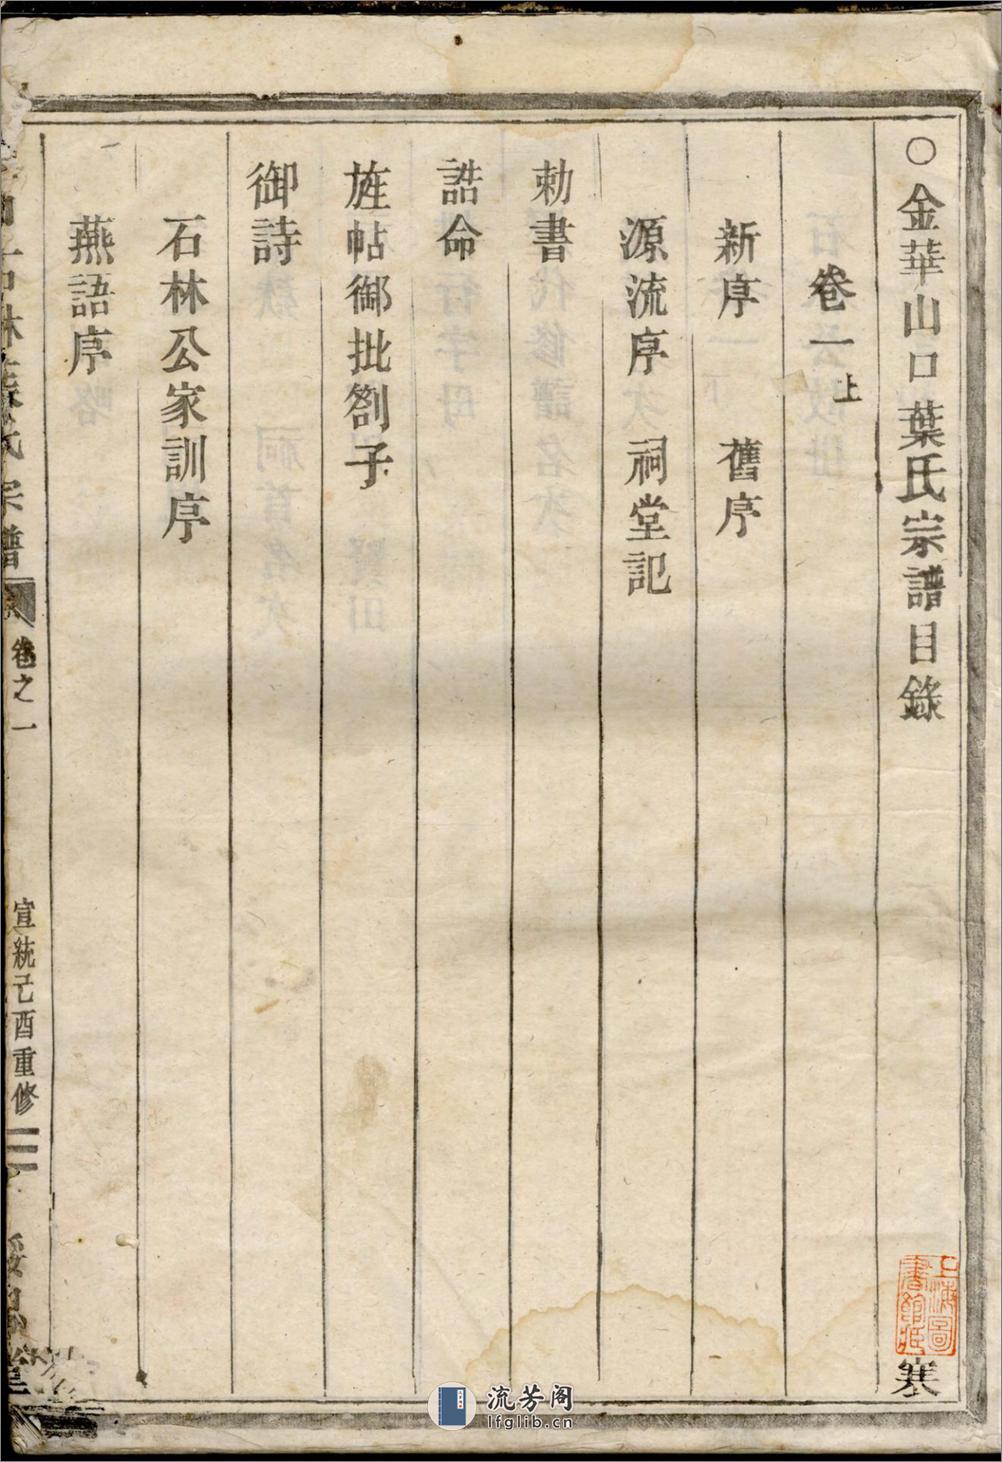 ○金華山口葉氏宗譜目錄
卷一上
新序　舊序
源流序　祠堂記
勅書
誥命
旌帖御批劄子
御詩
石林公家訓序
燕語序
氏宗譜
卷之一
宣統己酉重修
上海圖書館藏
流芳阁
lfglib.cn